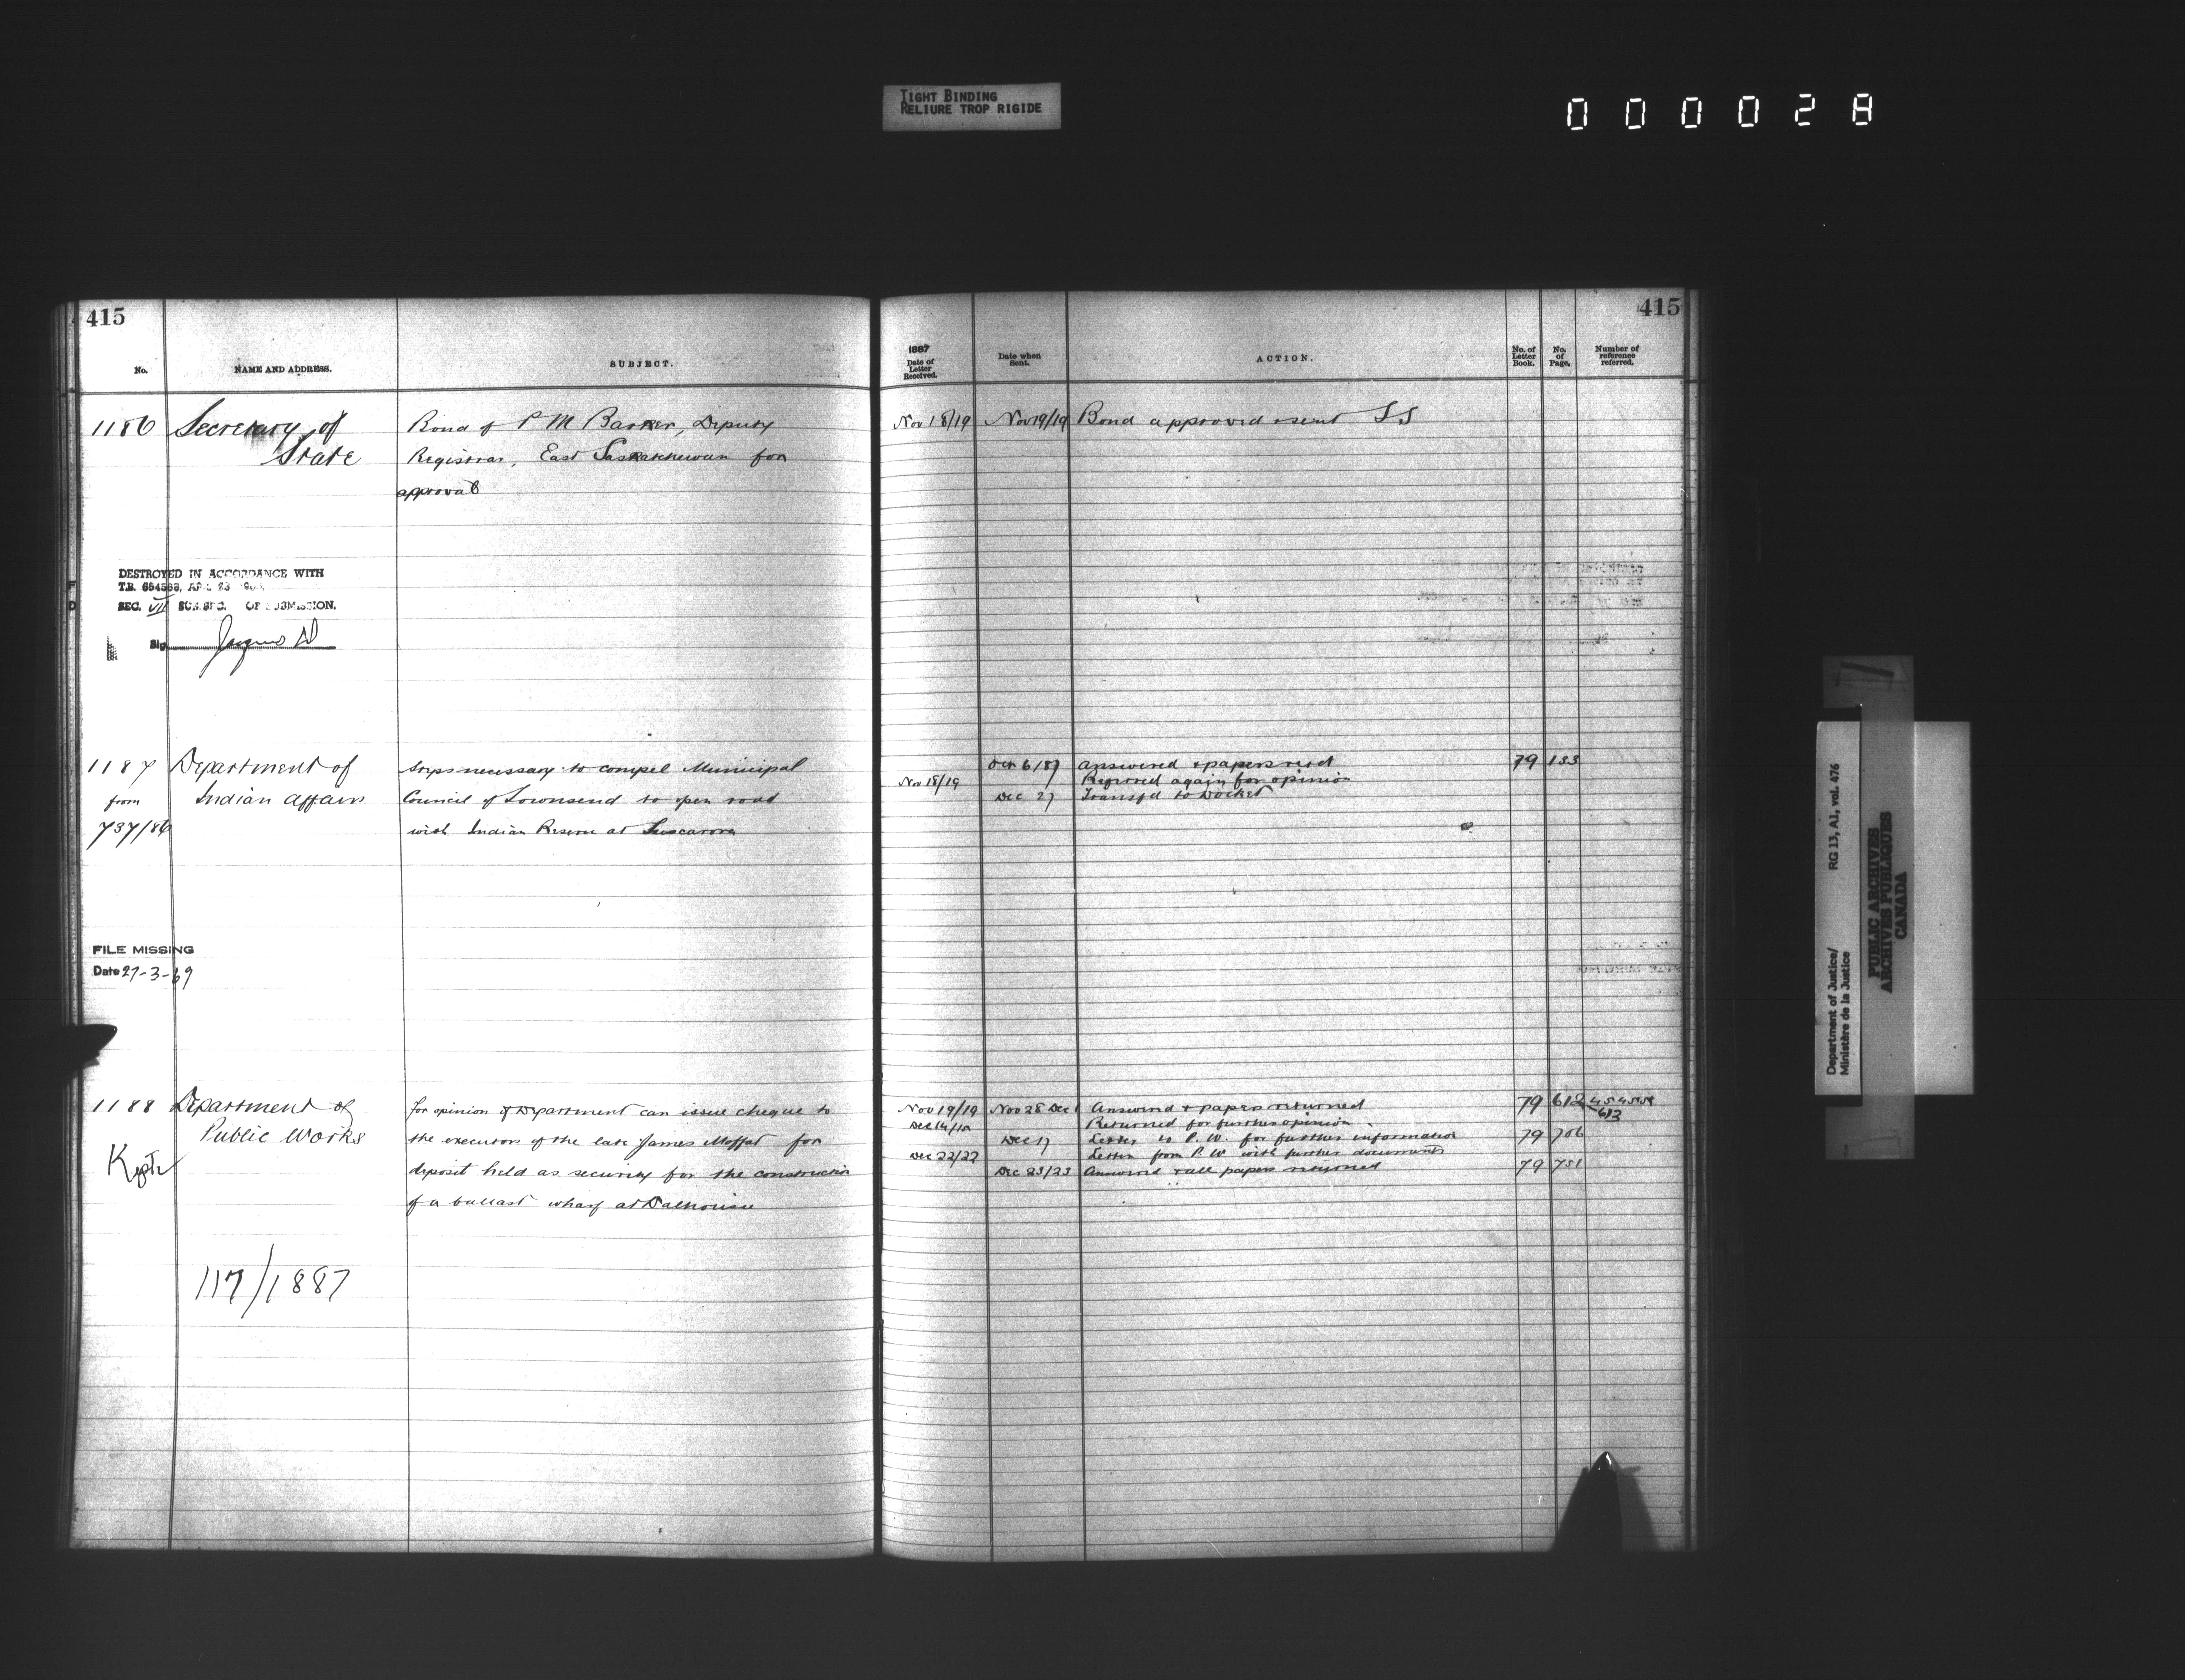 TIGHT BINDING
RELIURE TROP RIGIDE
000028
415
No.
NAME AND ADDRESS.
SUBJECT.
1186
Secretary of
State
Bond of P M Barker, Deputy
Registrar, East Saskatchewan for
approval
DESTROYED IN ACCORDANCE WITH
T.B. 654563, APR. 23
SEC. VII SUB. SEC. OF SUBMISSION.
Sig
1187
from
737/86
Department of
Indian Affairs
Steps necessary to compel Municipal
Council of Townsend to open road
with Indian Reserve at Tuscarora
FILE MISSING
Date 27-3-69
1188
Kept
Department of
Public Works
for opinion if Department can issue cheque to
the executors of the late James Moffat for
deposit held as security for the construction
of a ballast wharf at Dalhousie
117/1887
415
1887
Date of
Letter
Received.
Date when
Sent.
ACTION.
No. of
Letter
Book.
No.
of
Page.
Number of
reference
referred.
Nov 18/19 Nov 19/19 Bond approved & sent SS
6/87 Answered & papers retd 79 133
Nov 18/19 Referred again for opinion
Dec 27 Transfd to Docket
Nov 19/19 Nov 28 Dec 1 Answered & papers returned 79 612
613
Dec 14/15 Returned for further opinion
Dec 17 Letter to P. W. for further information 79 706
Dec 22/22 Letter from P. W with further documents
Dec 23/23 Answered & all papers returned 79 751
Department of Justice/
Ministère de la Justice
RG 13, A1, vol. 476
PUBLIC ARCHIVES
ARCHIVES PUBLIQUES
CANADA